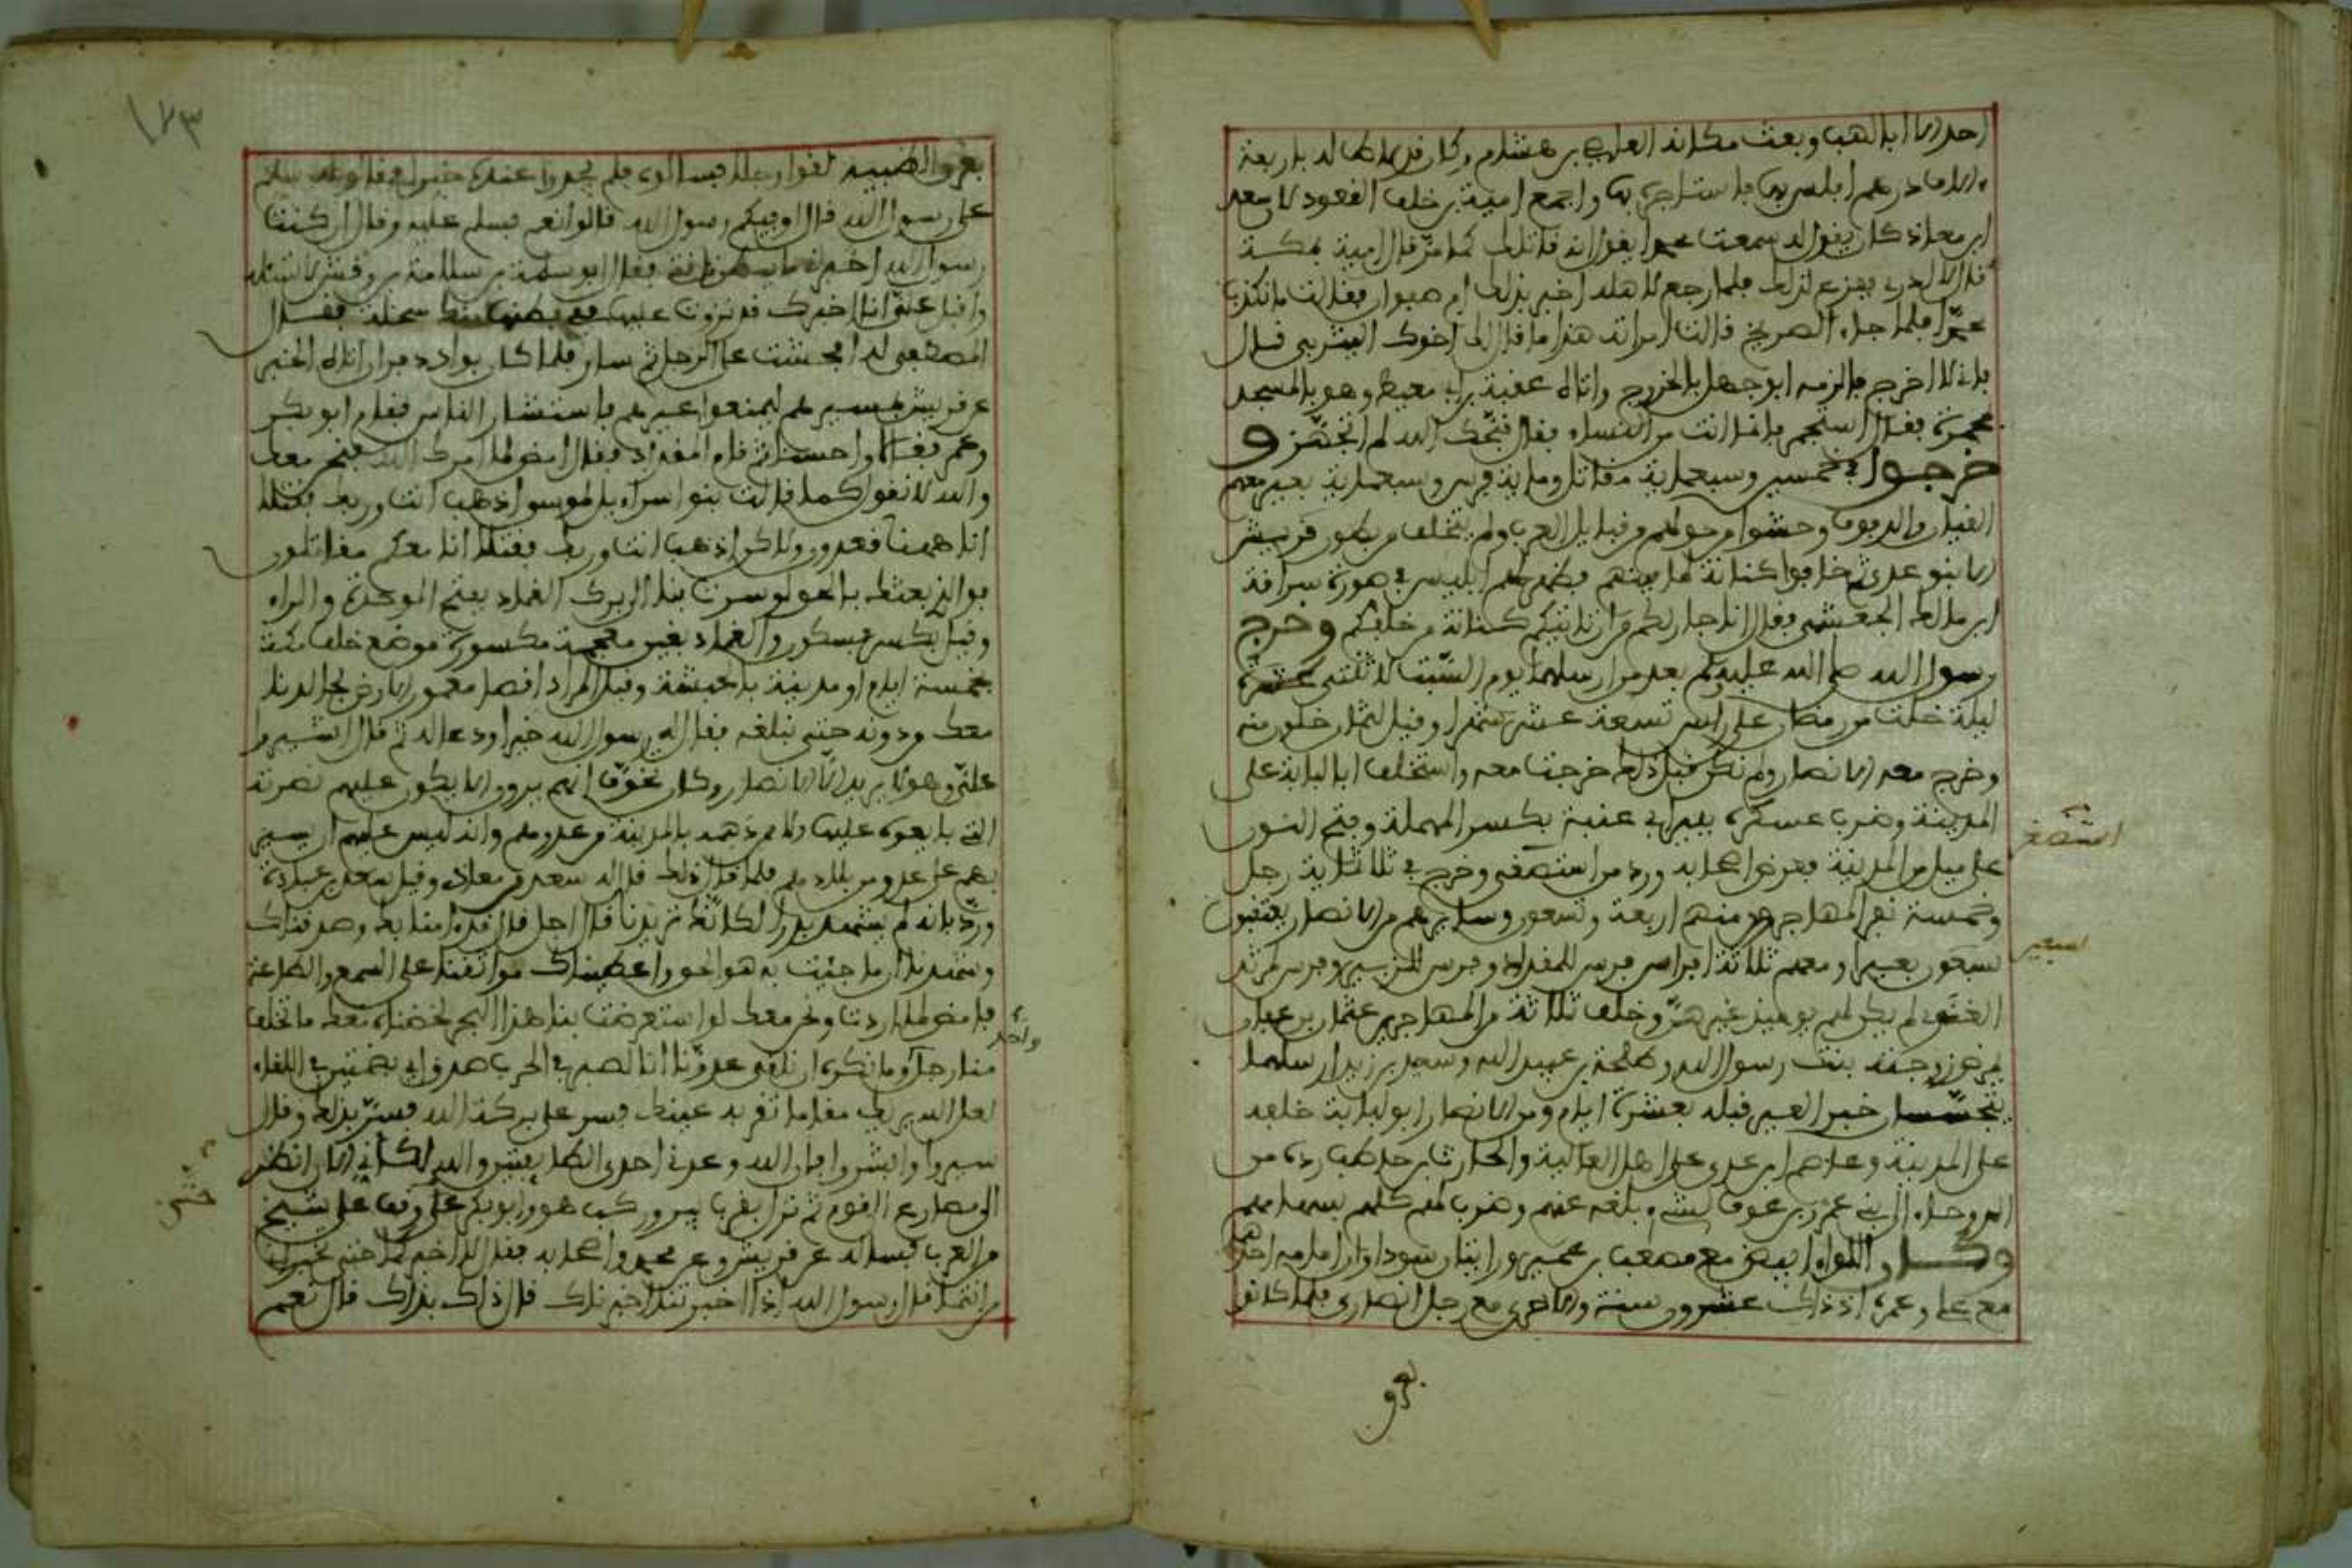 احد الا ابا لهب وبعث مكانه العاصي بن هشام وكان قد لاط له باربعة
الاف درهم افلس بها فاستاجره بها واجمع امية بن خلف القعود لان سعد
ابن معاذ كان يقول له سمعت محمدا يقول انه قاتلك كما مر قال امية بمكة
قال لا ادري ففزع لذلك فلما رجع لاهله اخبر بذلك ام صفوان فقالت ما نكذب
محمدا فلما جاء الصريخ قالت امراته هذا ما قال لك اخوك اليثربي قال
فاني لا اخرج فالزمه ابو جهل بالخروج واتاه عقبة بن ابي معيط وهو بالمسجد
بمجمرة فقال استجمر فانما انت من النساء فقال قبحك الله ثم تجهز و
خرجوا في خمسين وتسعماية مقاتل وماية فرس وسبعماية بعير معهم
القيان والدفوف وحشوا من حولهم من قبايل العرب ولم يتخلف من بطون قريش
الا بنو عدي ثم خافوا كنانة لما بينهم فظهر لهم ابليس في صورة سراقة
ابن مالك الجعشمي فقال انا جار لكم من ان تاتيكم كنانة من خلفكم وخرج
رسول الله صلى الله عليه وسلم بعد من ارسلهما يوم السبت لاثنتي عشرة
ليلة خلت من رمضان على راس تسعة عشر شهرا وقيل لثمان خلون منه
وخرج معه الانصار ولم تكن قبل ذلك خرجت معه واستخلف ابا لبابة على
المدينة وضرب عسكره ببير ابي عنبة بكسر المهملة وفتح النون
على ميل من المدينة فعرض اصحابه ورد من استصغر وخرج في ثلاثماية رجل
وخمسة نفر المهاجرون منهم اربعة وتسعون وسايرهم من الانصار يعتقبون
سبعون بعيرا ومعهم ثلاثة افراس فرس للمقداد وفرس للزبير وفرس لمرثد
الغنوي لم يكن لهم يوميذ غيرهن وخلف ثلاثة من المهاجرين عثمان بن عفان
يمرض زوجته بنت رسول الله وطلحة بن عبيد الله وسعيد بن زيد ارسلهما
يتجسسان خبر العير قبله بعشرة ايام ومن الانصار ابو لبابة خلفه
على المدينة وعاصم بن عدي على اهل العالية والحارث بن حاطب رده من
الروحاء الى بني عمرو بن عوف لشيء بلغه عنهم وضرب لهم كلهم بسهامهم
وكان اللواء ابيض مع مصعب بن عمير ورايتان سوداوان امامه احداهما
مع علي وعمره اذ ذاك عشرون سنة والاخرى مع رجل انصاري فلما كانو
بعرق
١٢٣
بعرق الظبية لقوا رجلا فسالوه فلم يجدوا عنده خبرا فقالوا له سلم
على رسول الله قال اوفيكم رسول الله قالوا نعم فسلم عليه وقال ان كنت
رسول الله اخبرني ما ببطن ناقتي فقال ابو سلمة بن سلامة بن وقش لا تسئله
واقبل علي انا اخبرك قد نزوت عليها ففي بطنها منك سخلة فقال
المصطفى له افحشت على الرجل ثم سار فلما كان بوادي ذفران اتاه الخبر
عن قريش بمسيرهم ليمنعوا عيرهم فاستشار الناس فقام ابو بكر
وعمر فقالا واحسنا ثم قام المقداد فقال امض لما امرك الله فنحن معك
والله لا نقول كما قالت بنو اسراءيل لموسى اذهب انت وربك فقاتلا
انا ههنا قعدون ولكن اذهب انت وربك فقاتلا انا معكم مقاتلون
فوالذي بعثك بالحق لو سرت بنا الى برك الغماد بفتح الموحدة والراء
وقيل بكسر فسكون والغماد بغين معجمة مكسورة موضع خلف مكة
بخمسة ايام او مدينة بالحبشة وقيل المراد اقصى معمور الارض لجالدنا
معك ودونه حتى نبلغه فقال له رسول الله خيرا ودعا له ثم قال اشيروا
علي وهو لا يريد الا الانصار وكان تخوف انهم يرون الا يكون عليهم نصرته
التي بايعوه عليها الا ممن دهمه بالمدينة من عدوهم وانه ليس عليهم ان يسير
بهم على عدو من بلادهم فلما قال ذلك قال له سعد بن معاذ وقيل سعد بن عبادة
ورد بانه لم يشهد بدرا لكانك تريدنا قال اجل قال قد امنا بك وصدقناك
وشهدنا ان ما جئت به هو الحق واعطيناك مواثقنا على السمع والطاعة
فامض لما اردت ونحن معك لو استعرضت بنا هذا البحر لخضناه معك ما تخلف
منا رجل وما نكره ان نلقى عدونا انا لصبر في الحرب صدق في اللقاء
لعل الله يريك منا ما تقر به عينك فسر على بركة الله فسر بذلك وقال
سيروا وابشروا فان الله وعدني احدى الطايفتين والله لكاني الان انظر
الى مصارع القوم ثم نزل بقرب بدر وركب هو وابو بكر حتى وقف على شيخ
من العرب فساله عن قريش وعن محمد واصحابه فقال لا اخبركما حتى تخبراني
من انتما قال رسول الله اذا اخبرتنا اخبرناك قال ذاك بذاك قال نعم
واحد